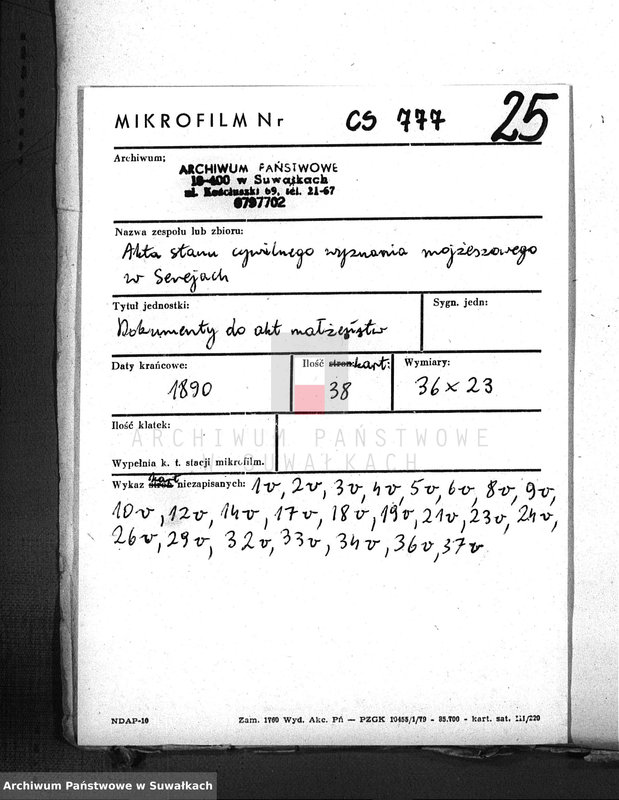 MIKROFILM Nr CS 777 25
Archiwum;
ARCHIWUM PAŃSTWOWE
16-400 w Suwałkach
ul. Kościuszki 69, tel. 21-67
6797702
Nazwa zespołu lub zbioru:
Akta stanu cywilnego wyznania mojżeszowego
w Serejach
Tytuł jednostki: Sygn. jedn:
Dokumenty do akt małżeństw
Daty krańcowe: Ilość stron: kart: Wymiary:
1890 38 36 x 23
Ilość klatek:
ARCHIWUM PAŃSTWOWE
W SUWAŁKACH
Wypełnia k. t. stacji mikrofilm.
Wykaz stron kart niezapisanych: 1v, 2v, 3v, 4v, 5v, 6v, 8v, 9v,
10v, 12v, 14v, 17v, 18v, 19v, 21v, 23v, 24v,
26v, 29v, 32v, 33v, 34v, 36v, 37v
NDAP-10 Zam. 1760 Wyd. Akc. Pń — PZGK 10455/1/79 - 85.700 - kart. sat. III/220
Archiwum Państwowe w Suwałkach